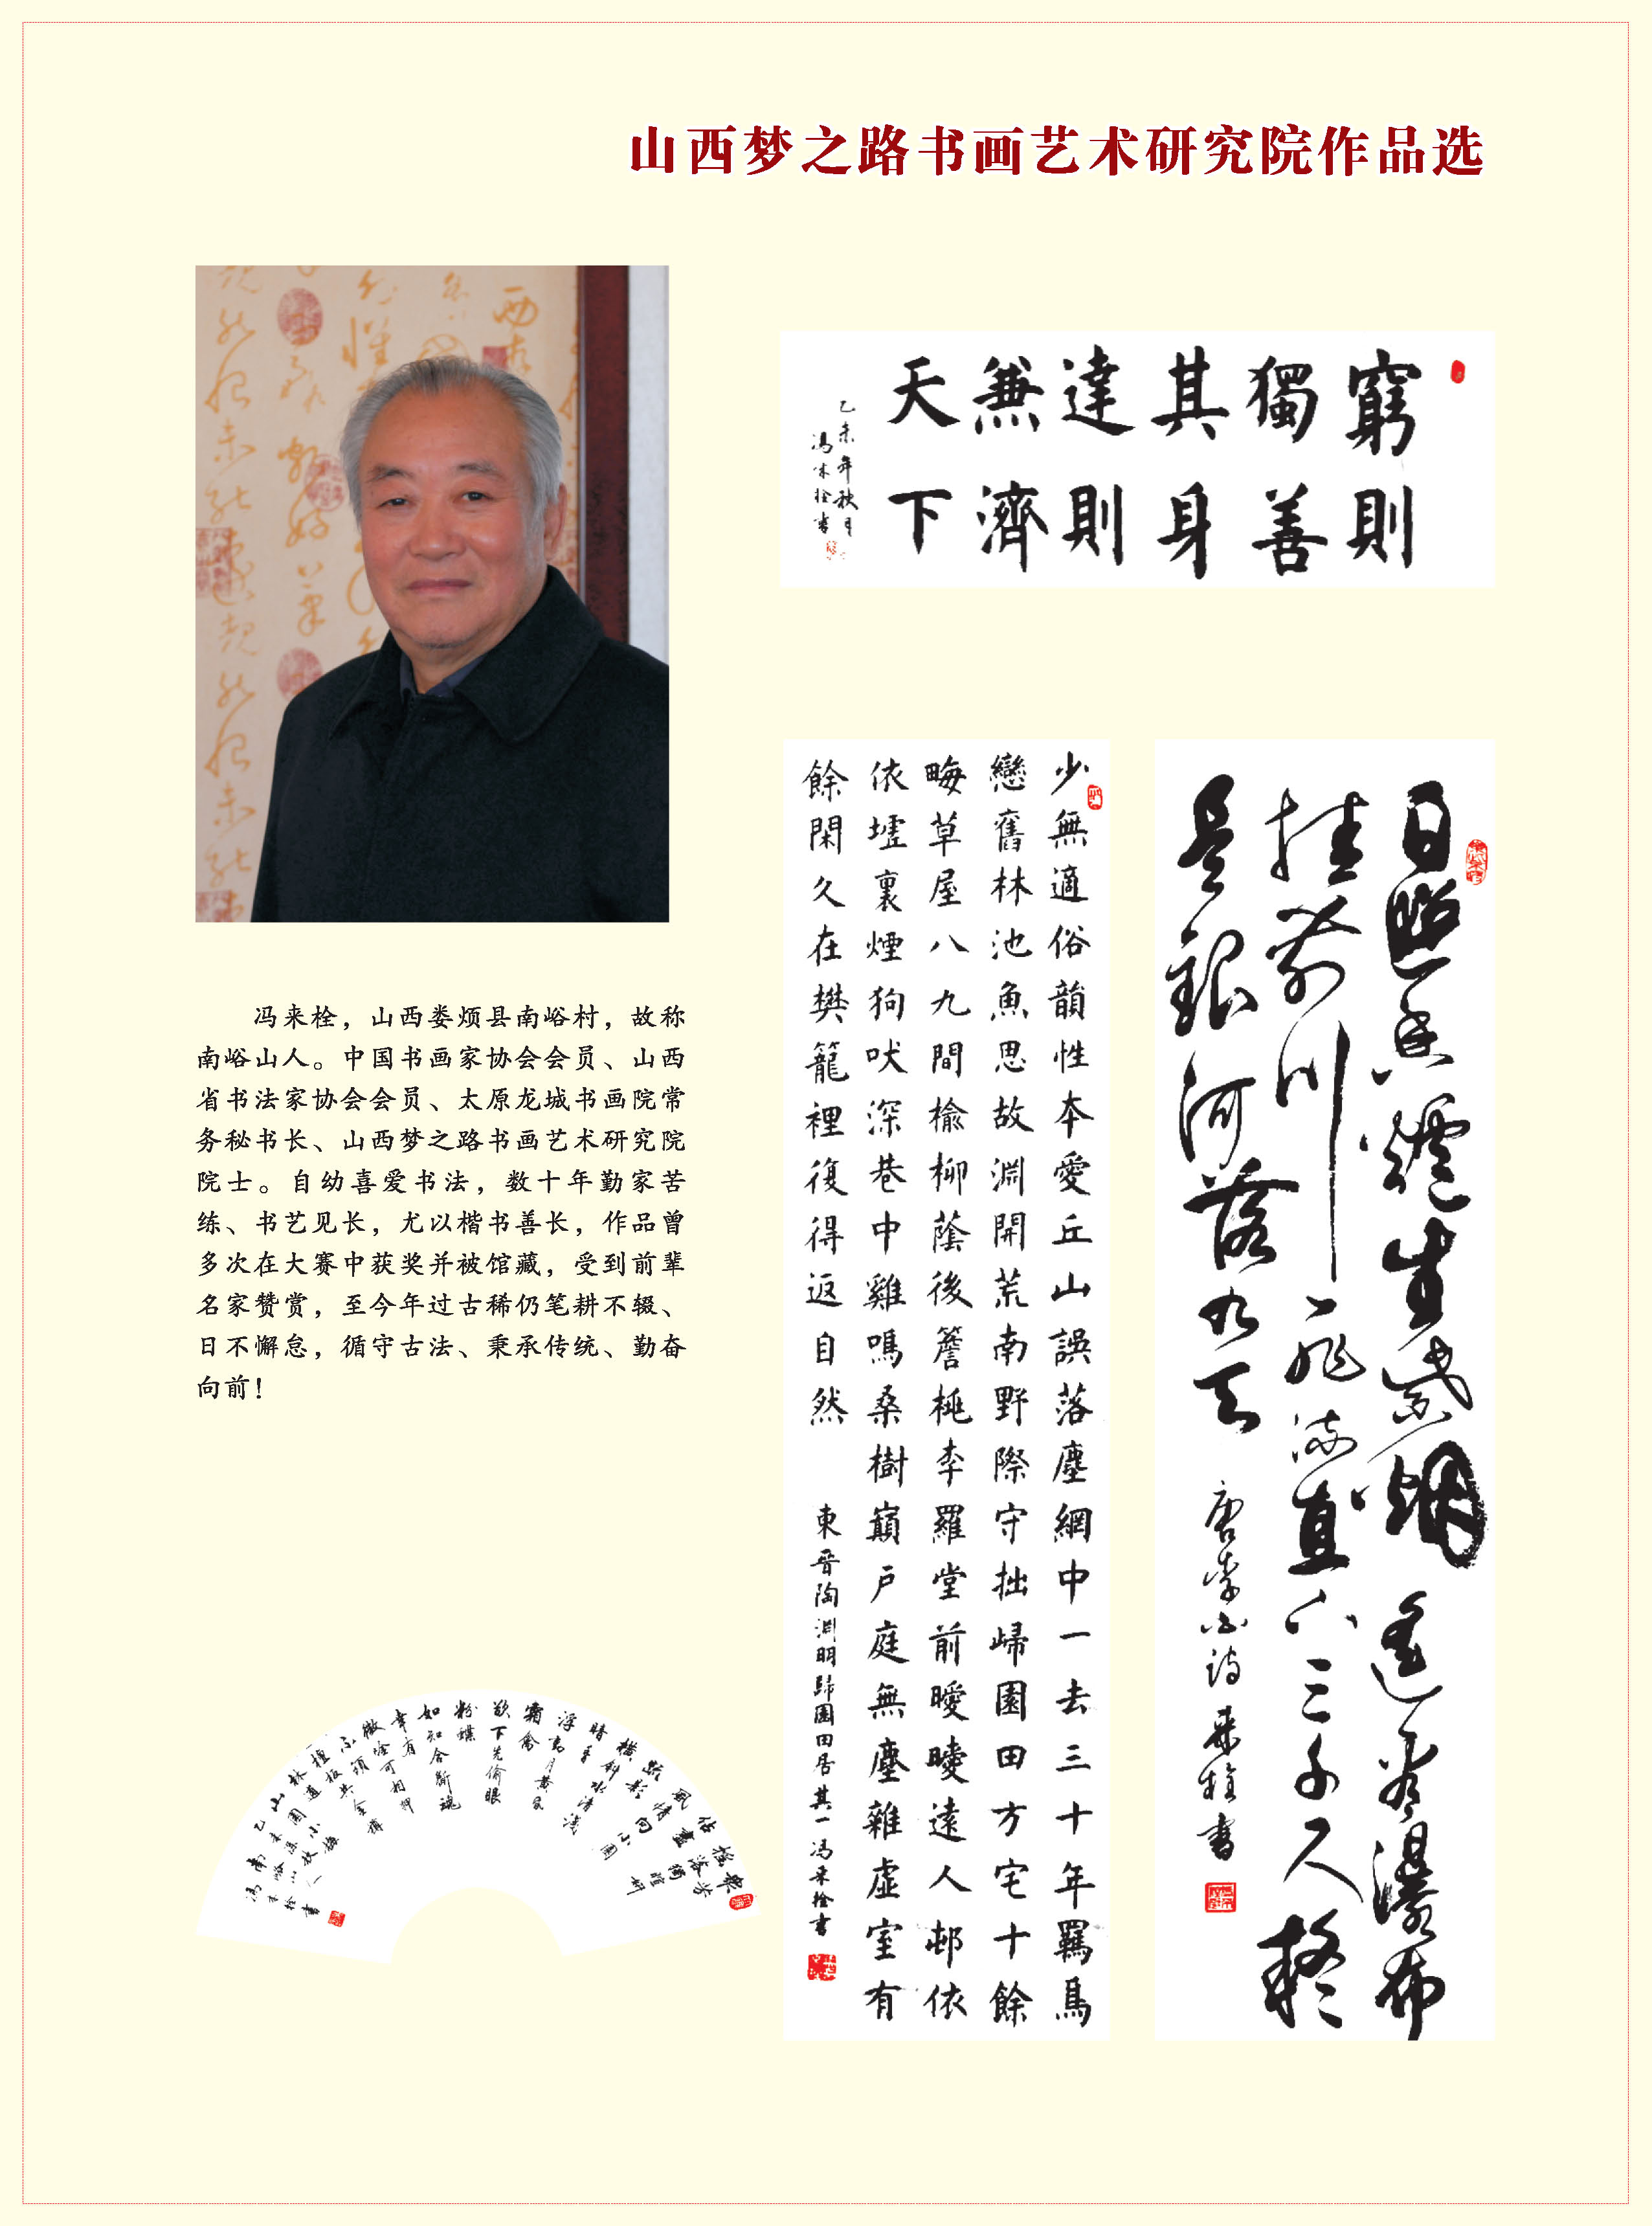 山西梦之路书画艺术研究院作品选
冯来栓，山西娄烦县南峪村，故称
南峪山人。中国书画家协会会员、山西
省书法家协会会员、太原龙城书画院常
务秘书长、山西梦之路书画艺术研究院
院士。自幼喜爱书法，数十年勤家苦
练、书艺见长，尤以楷书善长，作品曾
多次在大赛中获奖并被馆藏，受到前辈
名家赞赏，至今年过古稀仍笔耕不辍、
日不懈怠，循守古法、秉承传统、勤奋
向前！
窮則
獨善
其身
達則
兼濟
天下
乙未年秋月
馮來栓書
日照香爐生紫烟遙看瀑布
挂前川飛流直下三千尺疑
是銀河落九天
唐李白詩來栓書
少無適俗韻性本愛丘山誤落塵網中一去三十年羈鳥
戀舊林池魚思故淵開荒南野際守拙歸園田方宅十餘
畮草屋八九間榆柳蔭後簷桃李羅堂前曖曖遠人邨依
依墟裏煙狗吠深巷中雞鳴桑樹巔戶庭無塵雜虛室有
餘閑久在樊籠裡復得返自然
東晉陶淵明歸園田居其一馮來栓書
眾芳
搖落獨暄妍
佔盡
風情向小園
疏影
橫斜水清淺
暗香
浮動月黃昏
霜禽
欲下先偷眼
粉蝶
如知合斷魂
幸有
微吟可相狎
不須
檀板共金樽
林逋
山園小梅
乙未